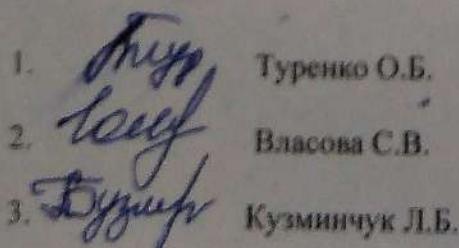 1. Туренко О.Б.
2. Власова С.В.
3. Кузминчук Л.Б.